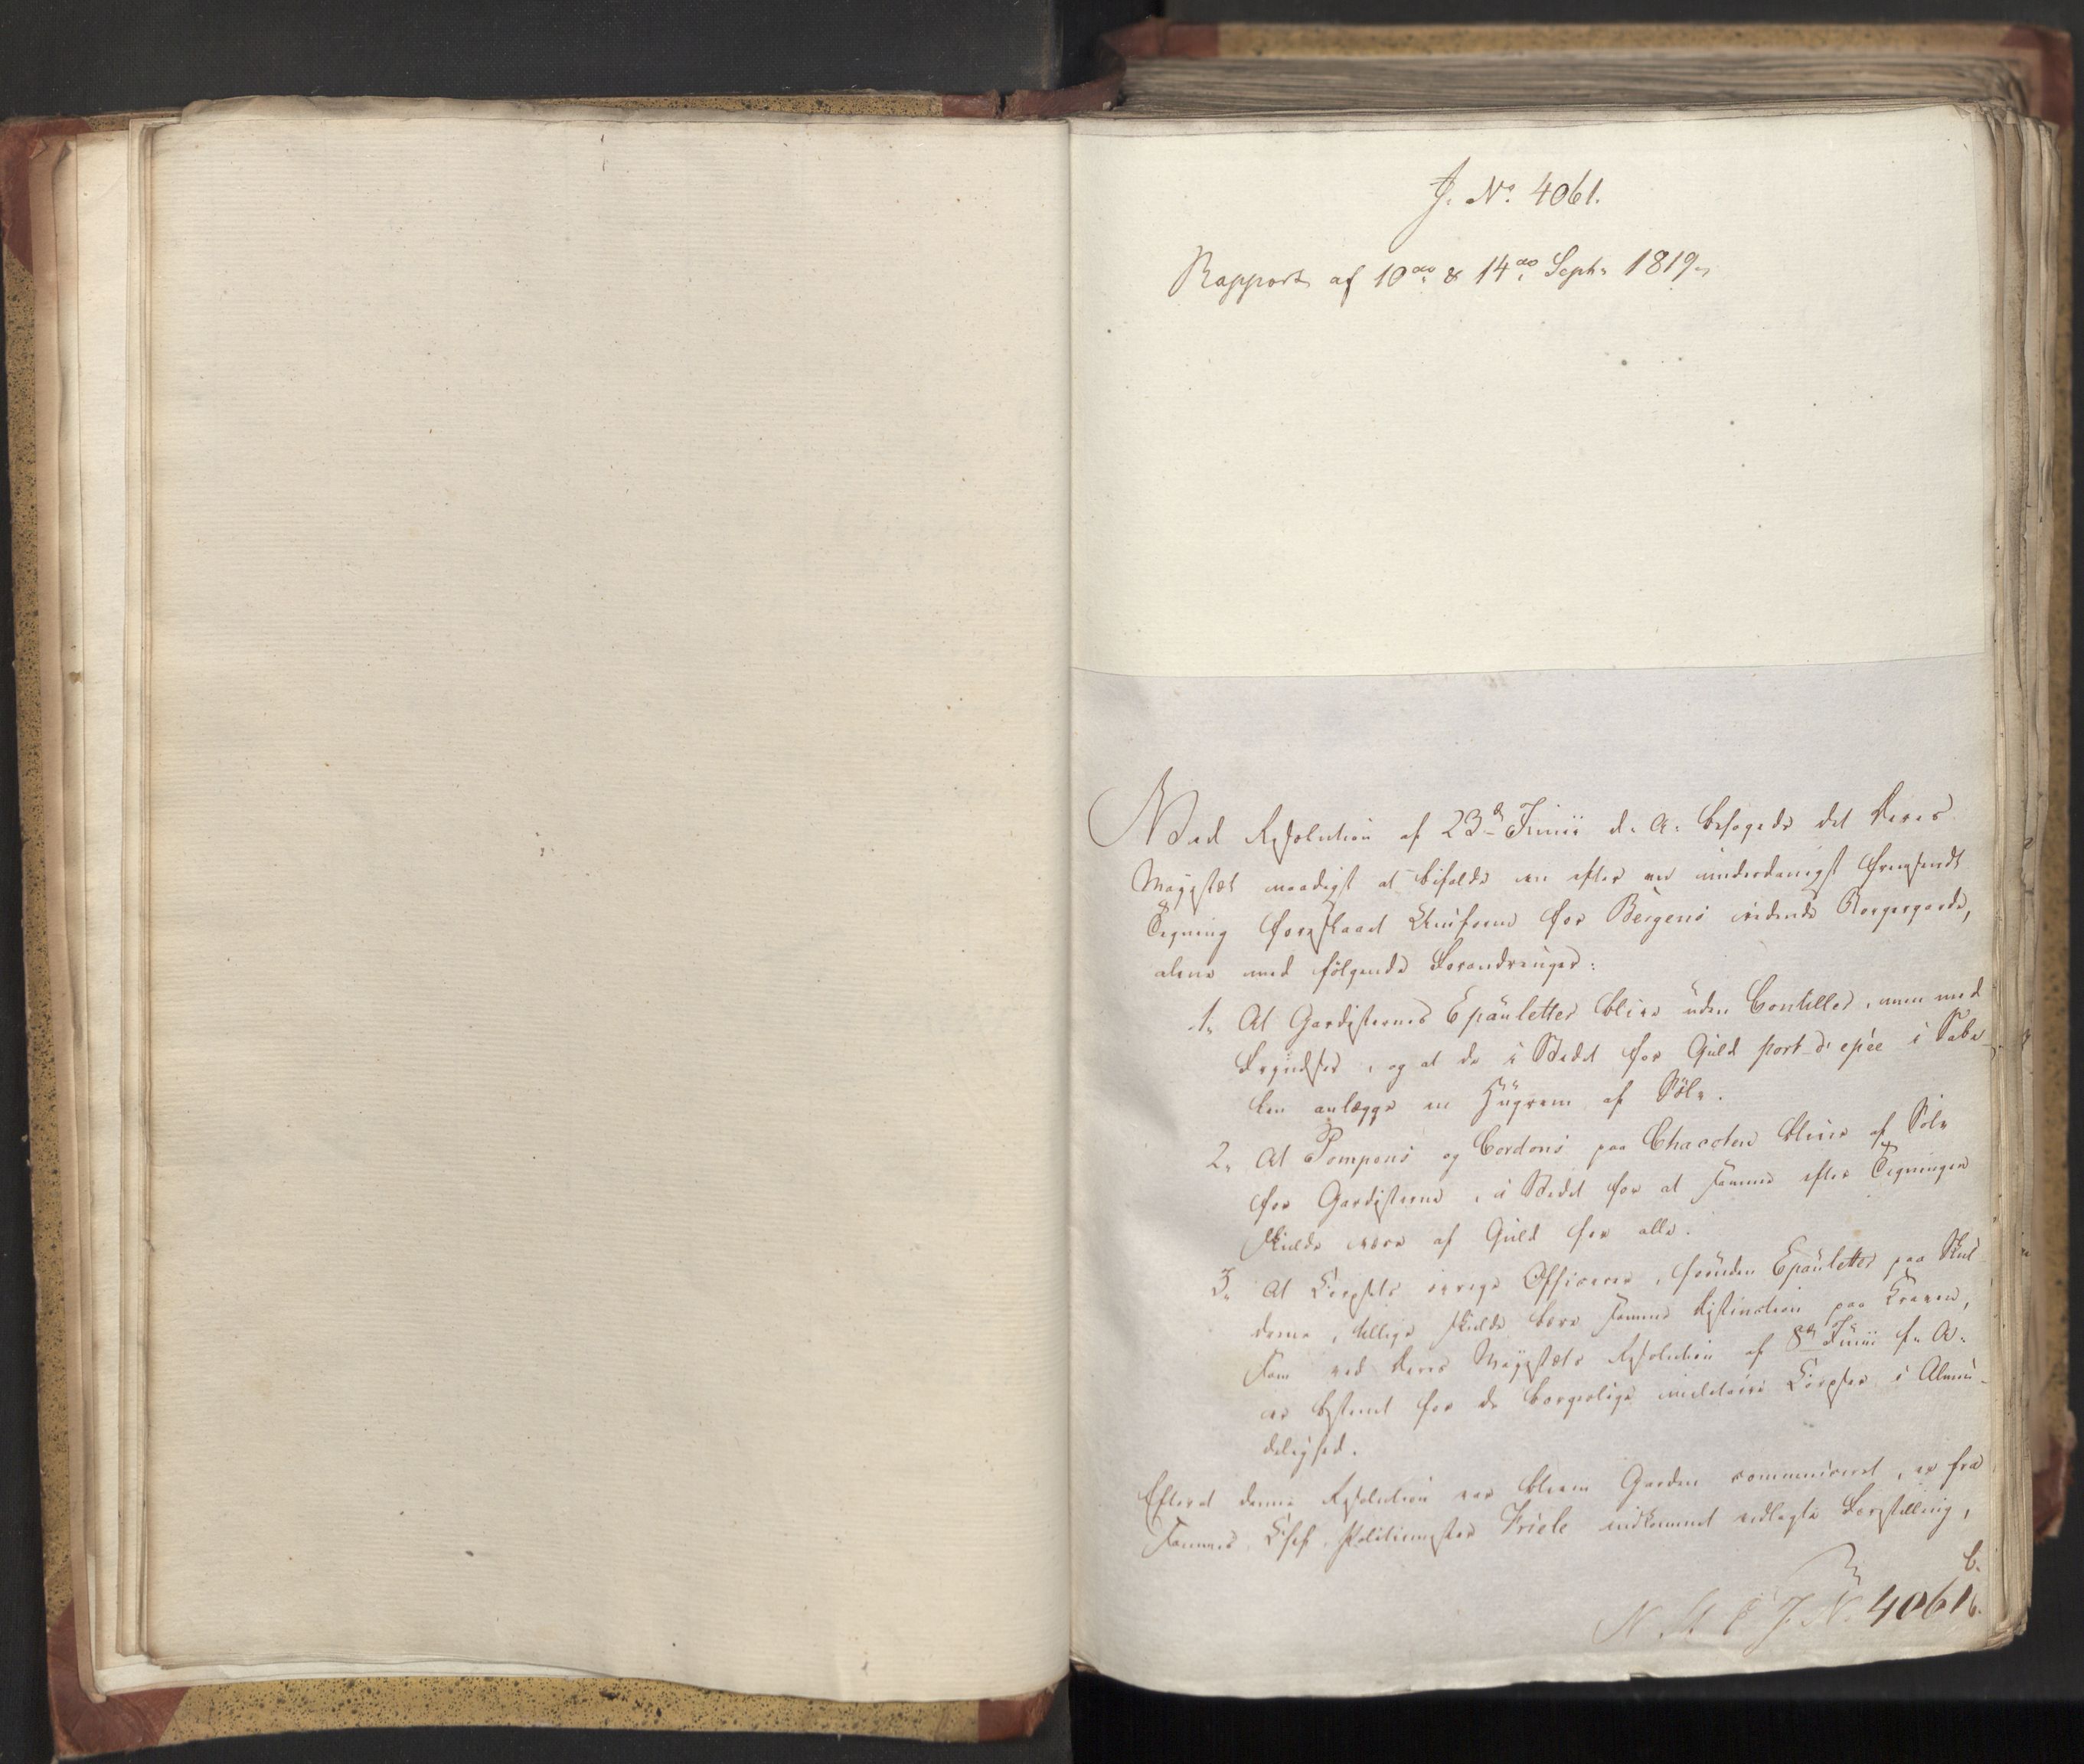 J. No. 4061.
Rapport af 10de & 14de Septr 1819.
Ved Resolution af 23d Junii d. A. behagede det Deres
Majestæt naadigst at bifalde en efter en underdanigst fremsendt
Tegning foreslaaet Uniform for Bergens ridende Borgergarde,
alene med følgende Forandringer:
1. At Gardisternes Epauletter blive uden Contiller, men med
Fryndser, og at de i Stedet for Guld port d'epée i Sabe-
len anlægge en Haandrem af Sølv.
2. At Pompons og Cordons paa Chacoten blive af Sølv
for Gardisterne, i Stedet for at samme efter Tegningen
skulde være af Guld for alle.
3. At Corpsets øvrige Officerer, foruden Epauletter paa Skul-
drene, tillige skulde bære samme Distinction paa Kraven,
som ved Deres Majestæts Resolution af 8d Junii f. A.
er bestemt for de borgerlige militaire Corpser i Almin-
delighed.
Efterat denne Resolution var bleven Garden communiceret, er fra
sammes Chef, Politimester Friele indkommet vedlagte Forestilling,
b.
J. N. 4061 b.